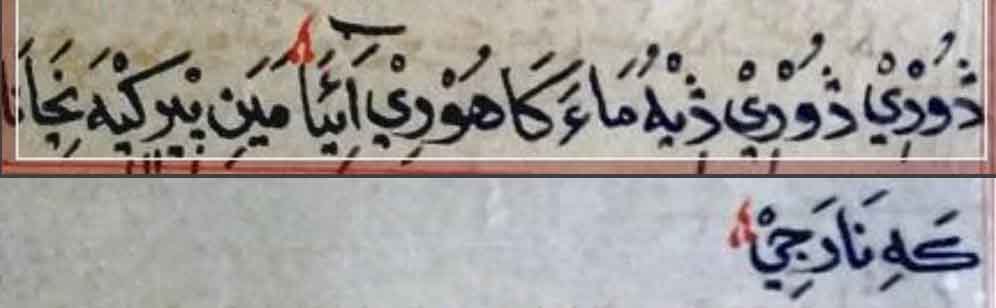 ذُوْرِيْ ذُوْرِيْ ذِيْهُ مَاءَ كَاهُوْرِيْ آئِيَا مَيَنِ بِيْرِ كِيْهَ نِجَانَا
كَهِ نَارَجِيْ